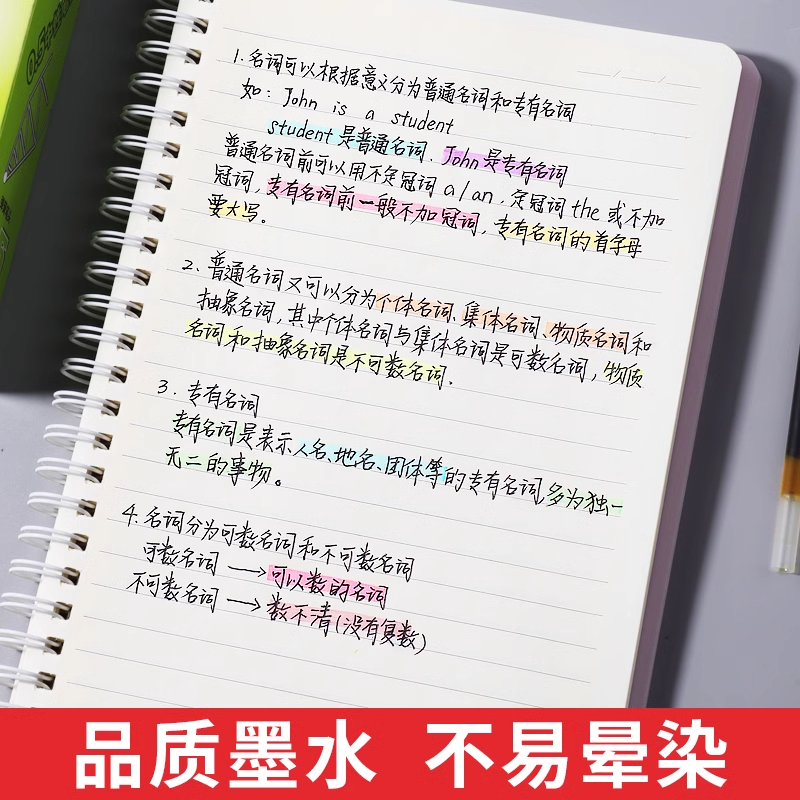 1.名词可以根据意义分为普通名词和专有名词
如：John is a student
student是普通名词．John是专有名词
普通名词前可以用不定冠词a/an．定冠词the或不加
冠词，专有名词前一般不加冠词，专有名词的首字母
要大写。
2、普通名词又可以分为个体名词、集体名词、物质名词和
抽象名词，其中个体名词与集体名词是可数名词，物质
名词和抽象名词是不可数名词．
3．专有名词
专有名词是表示人名、地名、团体等的专有名词,多为独一
无二的事物。
4.名词分为可数名词和不可数名词
可数名词→可以数的名词
不可数名词→数不清(没有复数)
品质墨水 不易晕染